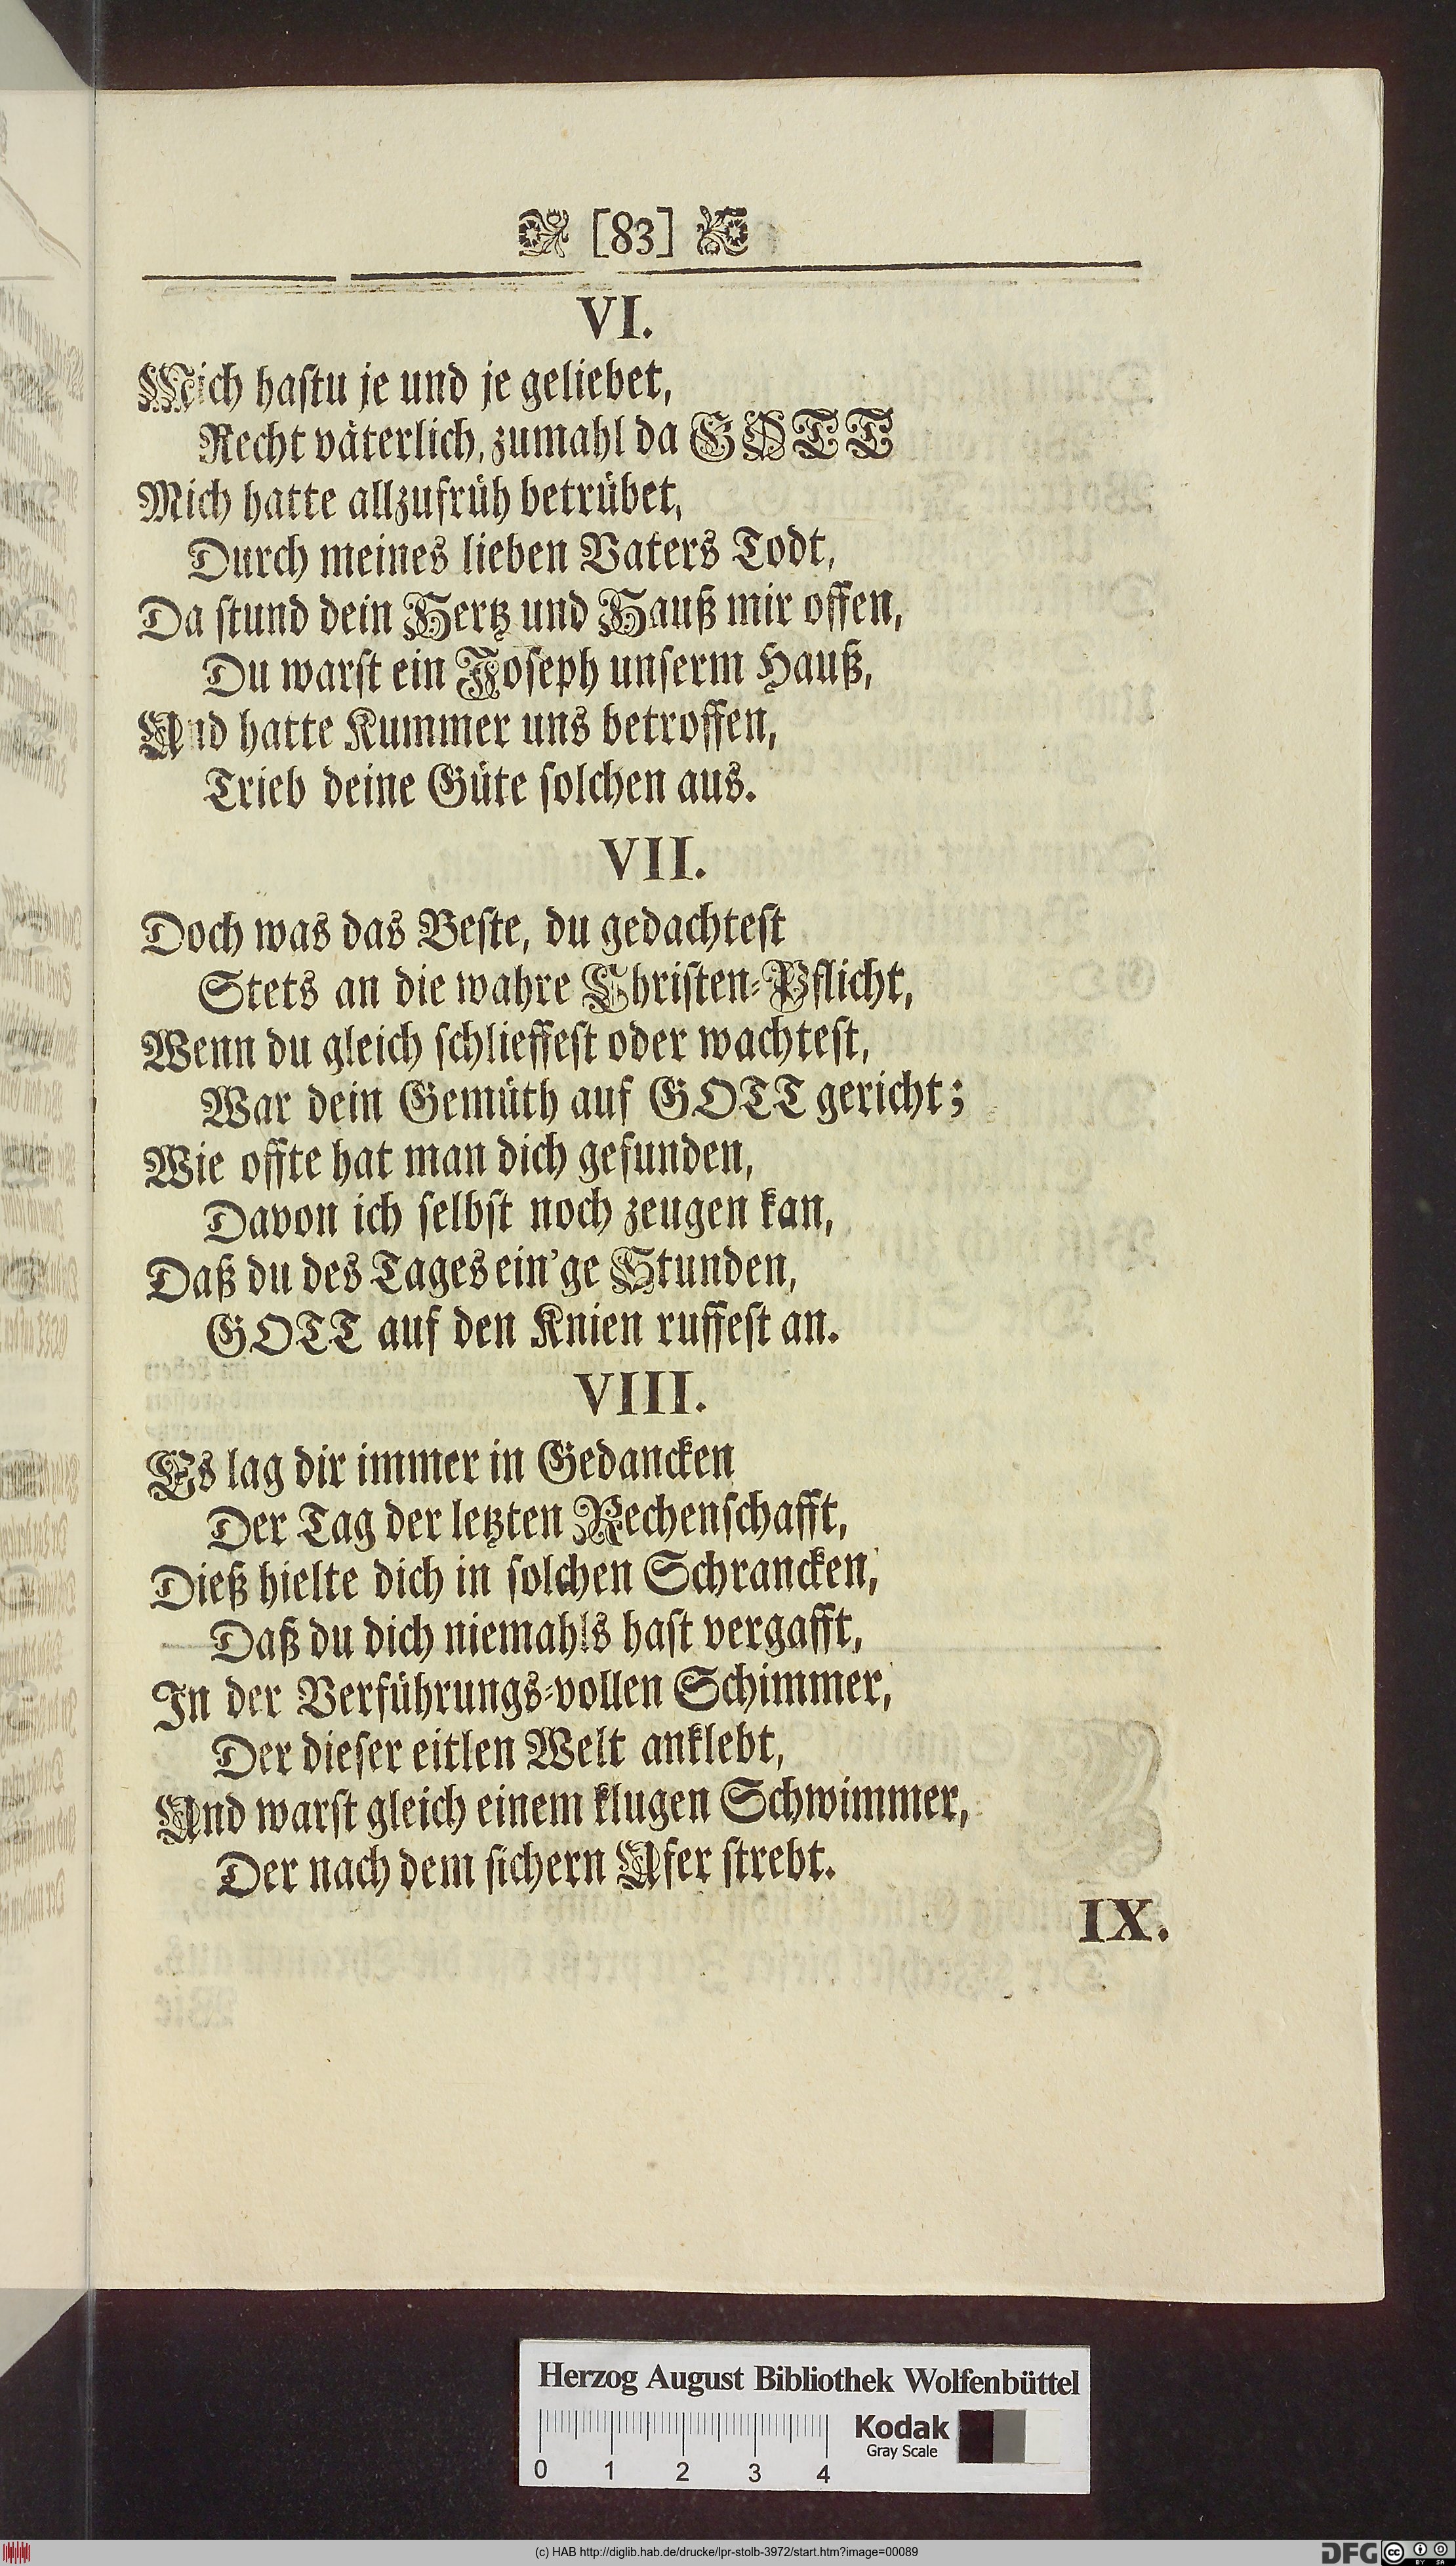 [83]
VI.
Mich hastu je und je geliebet,
Recht väterlich, zumahl da GOTT
Mich hatte allzufrüh betrübet,
Durch meines lieben Vaters Todt,
Da stund dein Hertz und Hauß mir offen,
Du warst ein Joseph unserm Hauß,
Und hatte Kummer uns betroffen,
Trieb deine Güte solchen aus.
VII.
Doch was das Beste, du gedachtest
Stets an die wahre Christen-Pflicht,
Wenn du gleich schlieffest oder wachtest,
War dein Gemüth auf GOTT gericht;
Wie offte hat man dich gefunden,
Davon ich selbst noch zeugen kan,
Daß du des Tages ein'ge Stunden,
GOTT auf den Knien ruffest an.
VIII.
Es lag dir immer in Gedancken
Der Tag der letzten Rechenschafft,
Dieß hielte dich in solchen Schrancken,
Daß du dich niemahls hast vergafft,
In der Verführungs-vollen Schimmer,
Der dieser eitlen Welt anklebt,
Und warst gleich einem klugen Schwimmer,
Der nach dem sichern Ufer strebt.
IX.
Herzog August Bibliothek Wolfenbüttel
Kodak
Gray Scale
0 1 2 3 4
(c) HAB http://diglib.hab.de/drucke/lpr-stolb-3972/start.htm?image=00089
DFG
cc BY SA